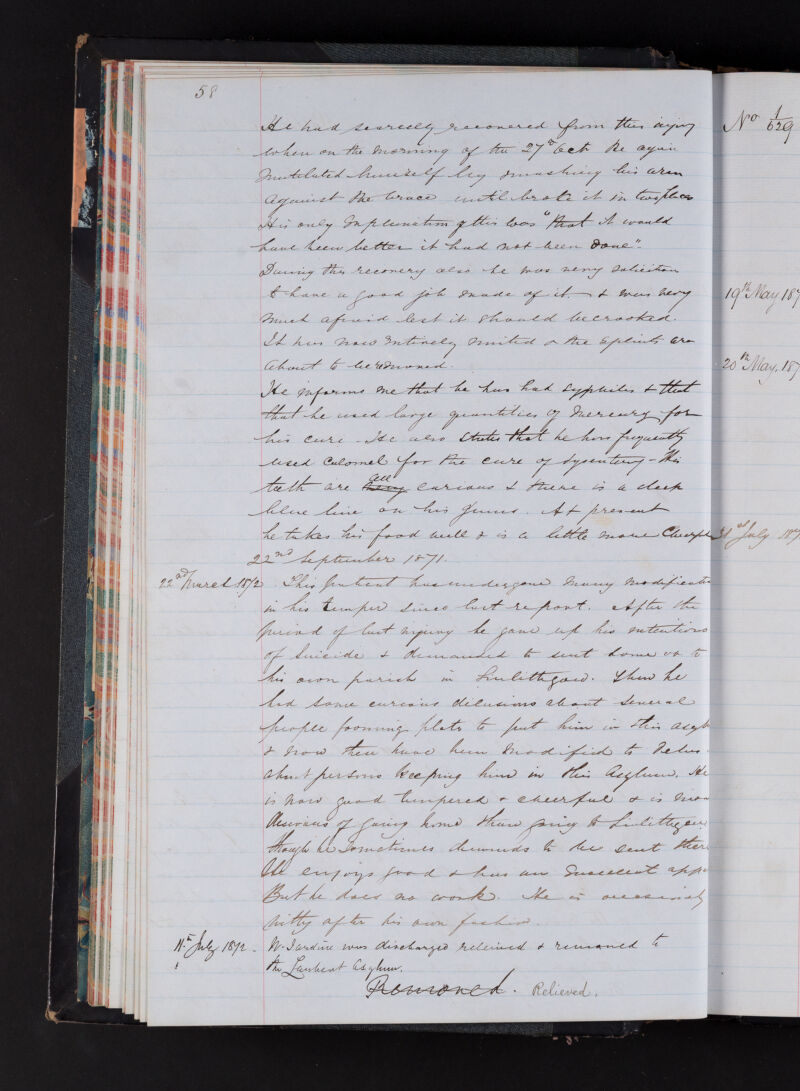 58
He had scarcely recovered from this injury
when on the morning of the 27th Oct he again
mutilated himself by smashing his arm
against the brace until broke it in two places
His only explanation of this was "that it would
have been better it had not been done".
During this recovery also he was very solicitous
to have a good job made of it & was very
much afraid lest it should be crooked.
It has now entirely united & the splints are
about to be removed.
He informs me that he has had syphilis & that
that he used large quantities of mercury for
his cure. He also states that he has frequently
used Calomel for the cure of dysentery - His
teeth are all carious & there is a dark
blue line on his gums. At present
he takes his food well & is a little more cheerful
22nd September 1871.
22nd March 1872 This patient has undergone many modifications
in his temper since last report. After the
period of last injury he gave up his intentions
of suicide & demanded to be sent home or to
his own parish in Linlithgow. Then he
had some curious delusions about several
people forming plots to put him in this asyl
& now these have been modified to delus
about persons keeping him in this Asylum. He
is now good tempered & cheerful & is more
desirous of going home than going to Linlithgow
though he sometimes demands to be sent there
He enjoys good & has an excellent app
But he does no work. He is occasionally
witty after his own fashion.
11th July 1872. W. Jardine was discharged relieved & removed to
the Larbert Asylum.
Removed. Relieved.
No 1/629
19th May 187
20th May, 187
31st July 187